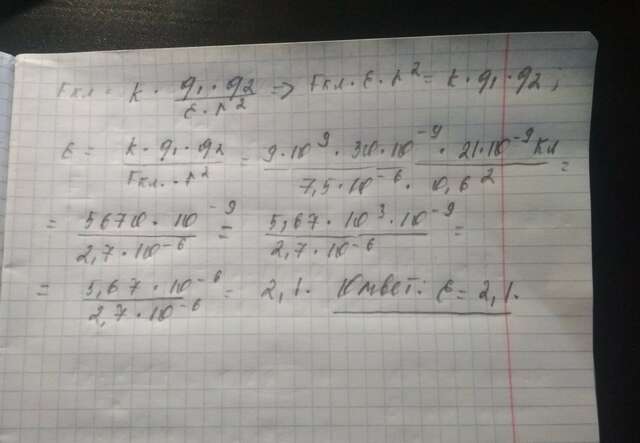 Fкл = k · q₁·q₂ / ε·r² => Fкл·ε·r² = k·q₁·q₂;
ε = k·q₁·q₂ / Fкл·r² = 9·10⁹·30·10⁻⁹·21·10⁻⁹Кл / 7,5·10⁻⁶·0,6² =
= 5670·10⁻⁹ / 2,7·10⁻⁶ = 5,67·10³·10⁻⁹ / 2,7·10⁻⁶ =
= 5,67·10⁻⁶ / 2,7·10⁻⁶ = 2,1. Ответ: ε = 2,1.